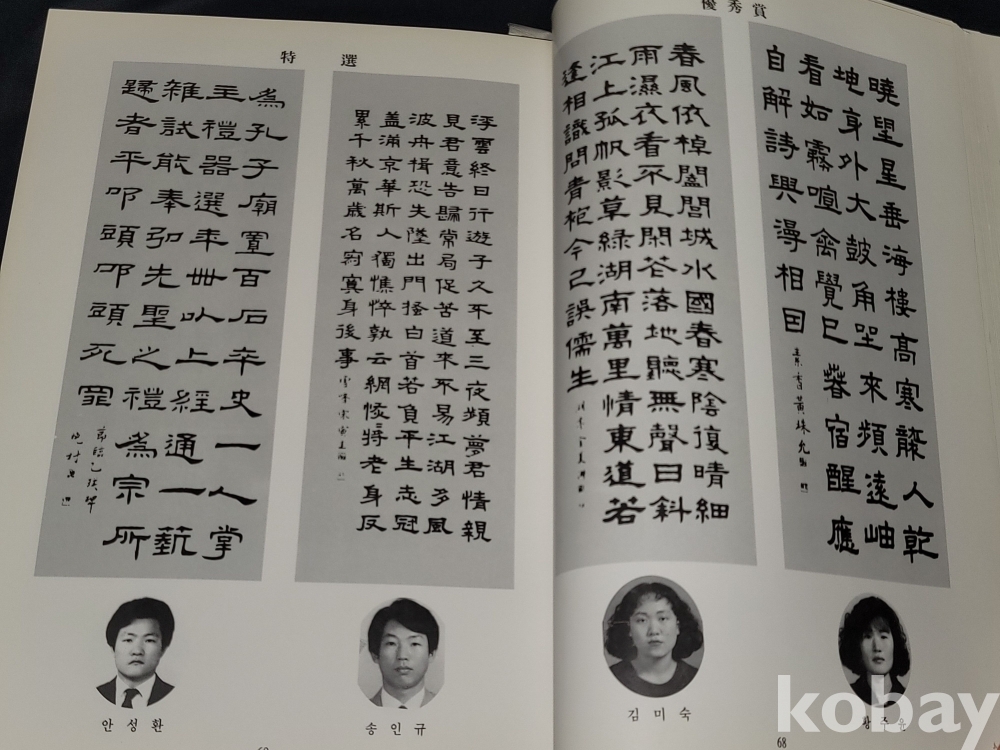 優秀賞
曉望星垂海樓高寒襲人乾
坤身外大鼓角坐來頻遠岫
看如霧喧禽覺已春宿醒應
自解詩興漫相因
春風依棹闔閭城水國春寒陰復晴細
雨濕衣看不見閑花落地聽無聲日斜
江上孤帆影草綠湖南萬里情東道若
逢相識問青袍今已誤儒生
황주윤
김미숙
68
特選
浮雲終日行遊子久不至三夜頻夢君情親
見君意告歸常局促苦道來不易江湖多風
波舟楫恐失墜出門搔白首若負平生志冠
盖滿京華斯人獨憔悴孰云網恢々將老身反
累千秋萬歲名寂寞身後事
爲孔子廟置百石卒史一人掌
主禮器選年卌以上經通一藝
雜試能奉弘先聖之禮爲宗所
歸者平叩頭叩頭死罪
송인규
안성환
kobay